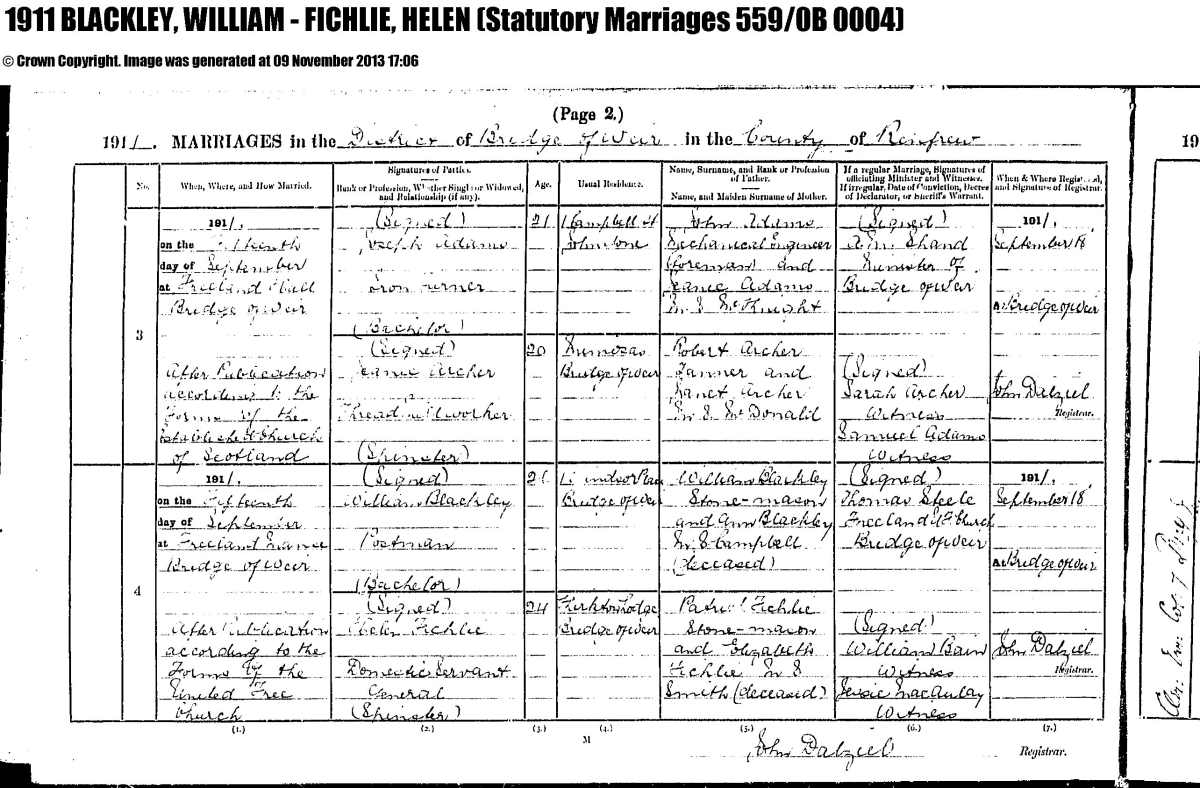 1911 BLACKLEY, WILLIAM - FICHLIE, HELEN (Statutory Marriages 559/0B 0004)
© Crown Copyright. Image was generated at 09 November 2013 17:06
(Page 2.)
1911. MARRIAGES in the District of Bridge of Weir in the County of Renfrew
19
No.
When, Where, and How Married.
Signatures of Parties.
Rank or Profession, Whether Single or Widowed, and Relationship (if any).
Age.
Usual Residence.
Name, Surname, and Rank or Profession of Father.
Name, and Maiden Surname of Mother.
If a regular Marriage, Signatures of officiating Minister and Witnesses.
If irregular, Date of Conviction, Decree of Declarator, or Sheriff's Warrant.
When & Where Registered, and Signature of Registrar.
3
1911.
on the Fifteenth
day of September
at Freeland Hall
Bridge of Weir
After Publication
according to the
Forms of the
Established Church
of Scotland
(Signed)
Joseph Adams
Iron Turner
(Bachelor)
(Signed)
Jeanie Archer
Thread millworker
(Spinster)
21
20
1 Campbell St
Johnstone
Bridge of Weir
John Adams
Mechanical Engineer
(foreman) and
Jeanie Adams
M.S. McKnight
Robert Archer
Tanner and
Janet Archer
M.S. McDonald
(Signed)
A.M. Shand
Minister of
Bridge of Weir
(Signed)
Sarah Archer
Witness
Samuel Adams
Witness
1911.
September 18
At Bridge of Weir
John Dalziel
Registrar.
4
1911.
on the Fifteenth
day of September
at Freeland Manse
Bridge of Weir
After Publication
according to the
Forms of the
United Free
Church
(Signed)
William Blackley
Postman
(Bachelor)
(Signed)
Helen Fichlie
Domestic Servant
General
(Spinster)
24
Bridge of Weir
Kirkton Lodge
Bridge of Weir
William Blackley
Stone-mason
and Ann Blackley
M.S. Campbell
(deceased)
Patrick Fichlie
Stone-mason
and Elizabeth
Fichlie M.S
Smith (deceased)
(Signed)
Thomas Steele
Freeland U.F. Church
Bridge of Weir
(Signed)
William Bain
Witness
Jessie MacAulay
Witness
1911.
September 18
At Bridge of Weir
John Dalziel
Registrar.
(1.)
(2.)
(3.)
(4.)
(5.)
(6.)
(7.)
M
John Dalziel
Registrar.